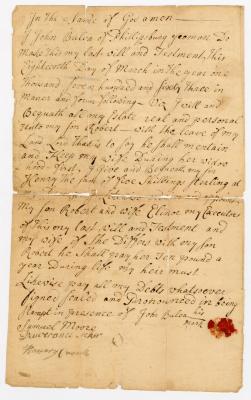 In the Name of God amen —
I John Buten of Philipsburg yeoman Do
Make this my last will and Testment, This
Eighteenth Day of March in the year one
Thousand Seven hundred and Sixty Three in
maner and form following — Viz I will and
Bequath all my Estate real and personal
unto my Son Robert — with the leave of my
Land that is to say he shall mentain
and Keep my wife During her widow
hood First, I give and Bequeath my Son
Henry the sum of five Shillings Sterling
my Son Robert and wife Elinor my Executors
of this my last will and Testment and
my wife if She Differs with my Son
he Shall pay her Ten pound a
year During life my heir must
Likewise pay all my Debts whatsoever
Signed Sealed and Pronounced in being
in presence of John Buten his
mark
Samuel Moore